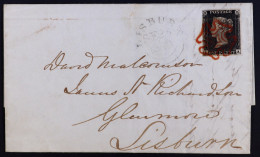 POSTAGE
David Malcomson
James N Richardson
Glenmore
Lisburn